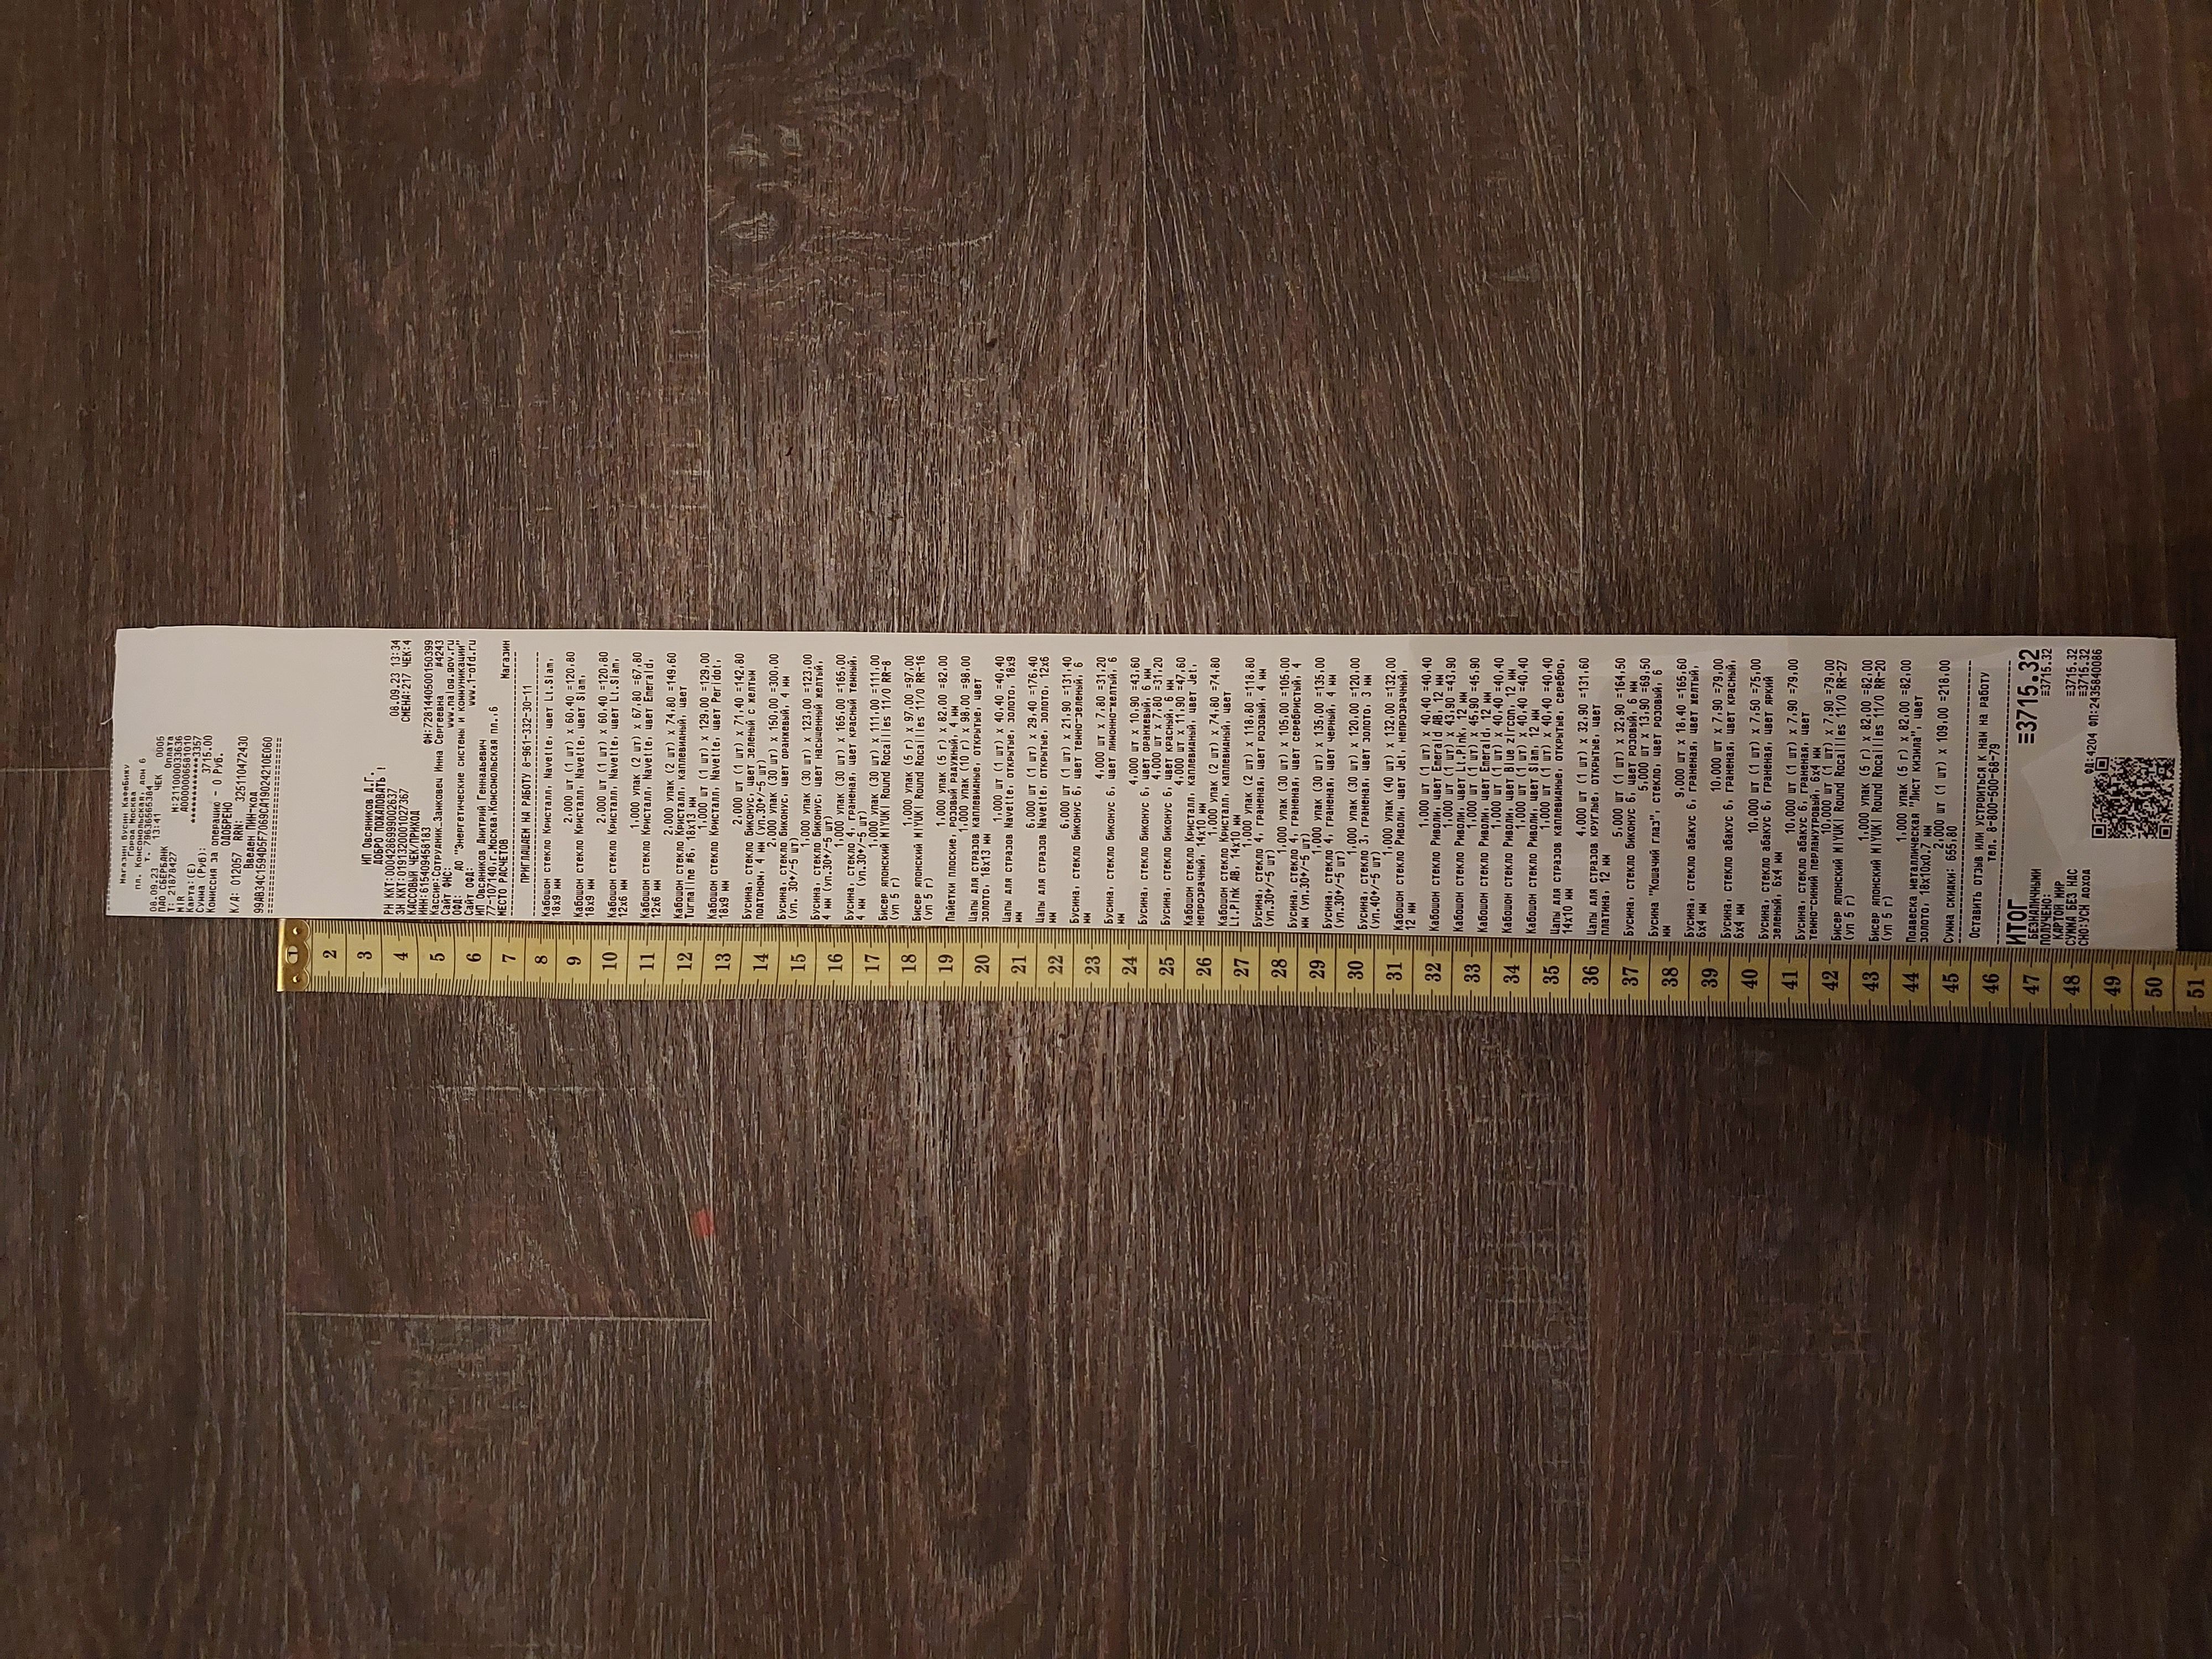 Магазин Бусин Камебину
Город Москва
пл. Комсомольская, дом 6
т. 79636566384
08.09.23 13:41 ЧЕК 0005
ПАО СБЕРБАНК Оплата
Т: 21878427 М:211000033636
MIR A0000006581010
Карта:(E) ************3357
Сумма (Руб): 3715.00
Комиссия за операцию - 0 Руб.
ОДОБРЕНО
К/А: 012067 RRN: 325110472430
Введен ПИН-код
ИП Овсяников Д.Г.
ДОБРО ПОЖАЛОВАТЬ !
РН ККТ:0004286999002637 08.09.23 13:34
ЗН ККТ:019132001027367 СМЕНА:217 ЧЕК:4
КАССОВЫЙ ЧЕК/ПРИХОД
ИНН:615494958183 ФН:7281440500150399
Кассир:Сотрудник.Заикович Инна Сергеевна #4243
Сайт ФНС: www.nalog.gov.ru
ОФД: АО "Энергетические системы и коммуникации"
Сайт ОФД: www.1-ofd.ru
ИП Овсяников Дмитрий Геннадьевич
77-107140,г.Москва,Комсомольская пл.6
МЕСТО РАСЧЕТОВ Магазин
ПРИГЛАШАЕМ НА РАБОТУ 8-961-332-30-11
Кабошон стекло Кристалл, Navette, цвет Lt.Siam,
18х9 мм
2,000 шт (1 шт) x 60,40 =120,80
Кабошон стекло Кристалл, Navette, цвет Siam,
18х9 мм
2,000 шт (1 шт) x 60,40 =120,80
Кабошон стекло Кристалл, Navette, цвет Lt.Siam,
12х6 мм
1,000 упак (2 шт) x 67,80 =67,80
Кабошон стекло Кристалл, Navette, цвет Emerald,
12х6 мм
2,000 упак (2 шт) x 74,80 =149,60
Кабошон стекло Кристалл, каплевидный, цвет
Turmaline #6, 18х13 мм
1,000 шт (1 шт) x 129,00 =129,00
Кабошон стекло Кристалл, Navette, цвет Peridot,
18х9 мм
2,000 шт (1 шт) x 71,40 =142,80
Бусина, стекло биконус, цвет зеленый с желтым
подтоном, 4 мм (уп.30+/-5 шт)
2,000 упак (30 шт) x 150,00 =300,00
Бусина, стекло биконус, цвет оранжевый, 4 мм
(уп. 30+/-5 шт)
1,000 упак (30 шт) x 123,00 =123,00
Бусина, стекло биконус, цвет насыщенный желтый,
4 мм (уп.30+/-5 шт)
1,000 упак (30 шт) x 165,00 =165,00
Бусина, стекло 4, граненая, цвет красный темный,
4 мм (уп.30+/-5 шт)
1,000 упак (30 шт) x 111,00 =111,00
Бисер японский MIYUKI Round Rocailles 11/0 RR-8
(уп 5 г)
1,000 упак (5 г) x 97,00 =97,00
Бисер японский MIYUKI Round Rocailles 11/0 RR-16
(уп 5 г)
1,000 упак (5 г) x 82,00 =82,00
Пайетки плоские, розовый радужный, 4 мм
1,000 упак (10 г) x 98,00 =98,00
Цапы для стразов каплевидные, открытые, цвет
золото, 18х13 мм
1,000 шт (1 шт) x 40,40 =40,40
Цапы для стразов Navette, открытые, золото, 18х9
мм
6,000 шт (1 шт) x 29,40 =176,40
Цапы для стразов Navette, открытые, золото, 12х6
мм
6,000 шт (1 шт) x 21,90 =131,40
Бусина, стекло биконус 6, цвет темно-зеленый, 6
мм
4,000 шт x 7,80 =31,20
Бусина, стекло биконус 6, цвет лимонно-желтый, 6
мм
4,000 шт x 10,90 =43,60
Бусина, стекло биконус 6, цвет оранжевый, 6 мм
4,000 шт x 7,80 =31,20
Бусина, стекло биконус 6, цвет красный, 6 мм
4,000 шт x 11,90 =47,60
Кабошон стекло Кристалл, каплевидный, цвет Jet,
непрозрачный, 14х10 мм
1,000 упак (2 шт) x 74,80 =74,80
Кабошон стекло Кристалл, каплевидный, цвет
Lt.Pink AB, 14х10 мм
1,000 упак (2 шт) x 118,80 =118,80
Бусина, стекло 4, граненая, цвет розовый, 4 мм
(уп.30+/-5 шт)
1,000 упак (30 шт) x 105,00 =105,00
Бусина, стекло 4, граненая, цвет серебристый, 4
мм (уп.30+/-5 шт)
1,000 упак (30 шт) x 135,00 =135,00
Бусина, стекло 4, граненая, цвет черный, 4 мм
(уп.30+/-5 шт)
1,000 упак (30 шт) x 120,00 =120,00
Бусина, стекло 3, граненая, цвет золото, 3 мм
(уп.40+/-5 шт)
1,000 упак (40 шт) x 132,00 =132,00
Кабошон стекло Риволи, цвет Jet, непрозрачный,
12 мм
1,000 шт (1 шт) x 40,40 =40,40
Кабошон стекло Риволи, цвет Emerald AB, 12 мм
1,000 шт (1 шт) x 43,90 =43,90
Кабошон стекло Риволи, цвет Lt.Pink, 12 мм
1,000 шт (1 шт) x 45,90 =45,90
Кабошон стекло Риволи, цвет Emerald, 12 мм
1,000 шт (1 шт) x 40,40 =40,40
Кабошон стекло Риволи, цвет Blue Zircon, 12 мм
1,000 шт (1 шт) x 40,40 =40,40
Кабошон стекло Риволи, цвет Siam, 12 мм
1,000 шт (1 шт) x 40,40 =40,40
Цапы для стразов каплевидные, открытые, серебро,
14х10 мм
4,000 шт (1 шт) x 32,90 =131,60
Цапы для стразов круглые, открытые, цвет
платина, 12 мм
5,000 шт (1 шт) x 32,90 =164,50
Бусина, стекло биконус 6, цвет розовый, 6 мм
5,000 шт x 13,90 =69,50
Бусина "Кошачий глаз", стекло, цвет розовый, 6
мм
9,000 шт x 18,40 =165,60
Бусина, стекло абакус 6, граненая, цвет желтый,
6х4 мм
10,000 шт x 7,90 =79,00
Бусина, стекло абакус 6, граненая, цвет красный,
6х4 мм
10,000 шт (1 шт) x 7,50 =75,00
Бусина, стекло абакус 6, граненая, цвет яркий
зеленый, 6х4 мм
10,000 шт (1 шт) x 7,90 =79,00
Бусина, стекло абакус 6, граненая, цвет
темно-синий перламутровый, 6х4 мм
10,000 шт (1 шт) x 7,90 =79,00
Бисер японский MIYUKI Round Rocailles 11/0 RR-27
(уп 5 г)
1,000 упак (5 г) x 82,00 =82,00
Бисер японский MIYUKI Round Rocailles 11/0 RR-20
(уп 5 г)
1,000 упак (5 г) x 82,00 =82,00
Подвеска металлическая "Лист кизила", цвет
золото, 18х10х0.7 мм
2,000 шт (1 шт) x 109,00 =218,00
Сумма скидки: 655,80
Оставить отзыв или устроиться к нам на работу
тел. 8-800-500-68-79
ИТОГ ≡3715.32
БЕЗНАЛИЧНЫМИ ≡3715.32
ПОЛУЧЕНО:
КАРТОЙ МИР ≡3715.32
СУММА БЕЗ НДС ≡3715.32
СНО:УСН доход ФД:4204 ФП:2435840086
1 2 3 4 5 6 7 8 9 10 11 12 13 14 15 16 17 18 19 20 21 22 23 24 25 26 27 28 29 30 31 32 33 34 35 36 37 38 39 40 41 42 43 44 45 46 47 48 49 50 51